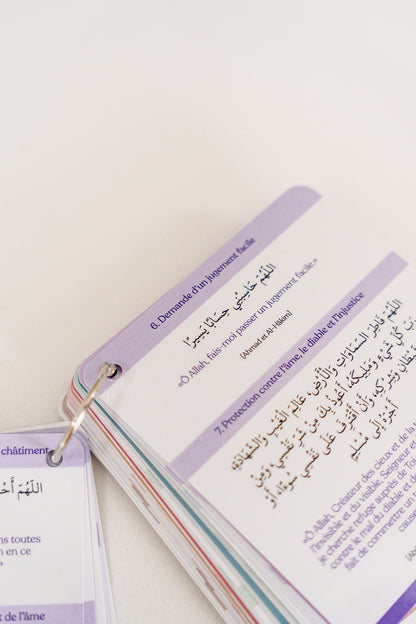 6. Demande d'un jugement facile
اللَّهُمَّ حَاسِبْنِي حِسَابًا يَسِيرًا
«Ô Allah, fais-moi passer un jugement facile.»
[Ahmad et Al-Hâkim]
7. Protection contre l'âme, le diable et l'injustice
اللَّهُمَّ فَاطِرَ السَّمَاوَاتِ وَالْأَرْضِ، عَالِمَ الْغَيْبِ وَالشَّهَادَةِ
كُلِّ شَيْءٍ وَمَلِيكَهُ، أَعُوذُ بِكَ مِنْ شَرِّ نَفْسِي، وَمِنْ
وَشِرْكِهِ، وَأَنْ أَقْتَرِفَ عَلَى نَفْسِي سُوءًا، أَوْ
أَجُرَّهُ إِلَى مُسْلِمٍ
«Ô Allah, Créateur des cieux et de la
l'invisible et du visible, Seigneur d
je cherche refuge auprès de
contre le mal du diable et d
fait de commettre un
châtiment
اللَّهُمَّ
ns toutes
n en ce
»
t de l'âme